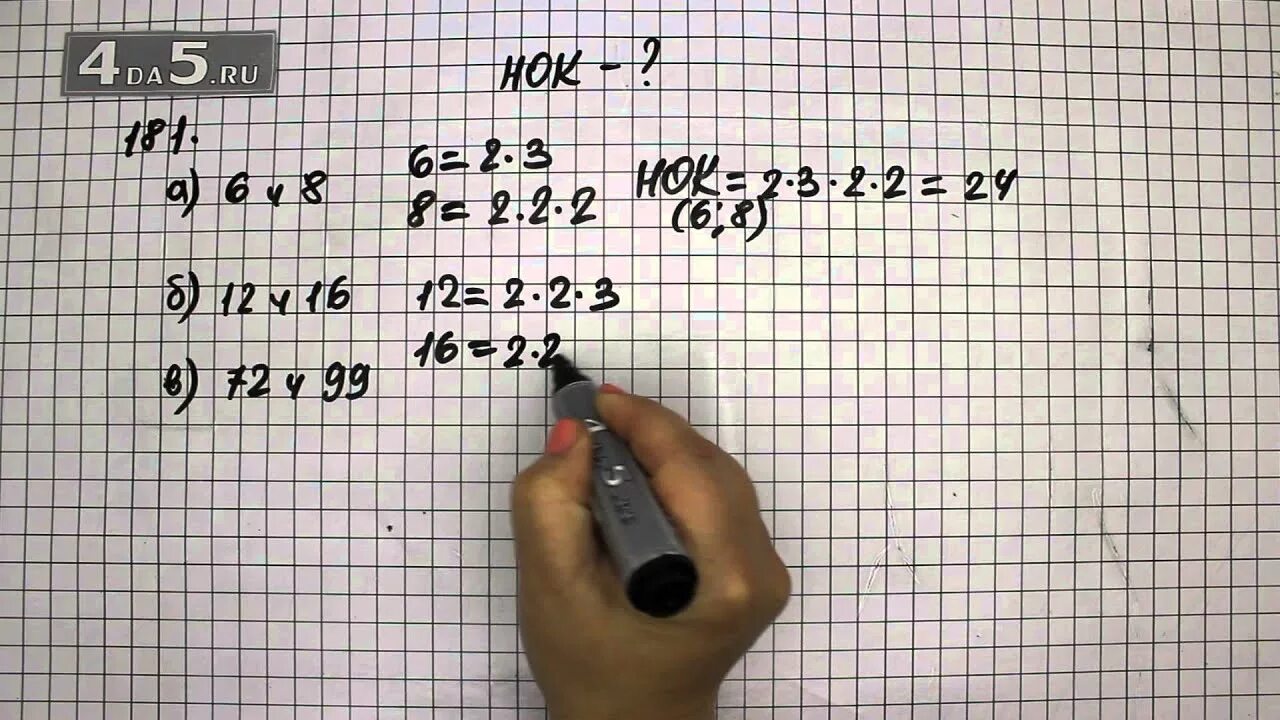 4DA5.RU
НОК - ?
181.
а) 6 и 8
6 = 2·3
8 = 2·2·2
НОК = 2·3·2·2 = 24
(6;8)
б) 12 и 16
12 = 2·2·3
16 = 2·2
в) 72 и 99